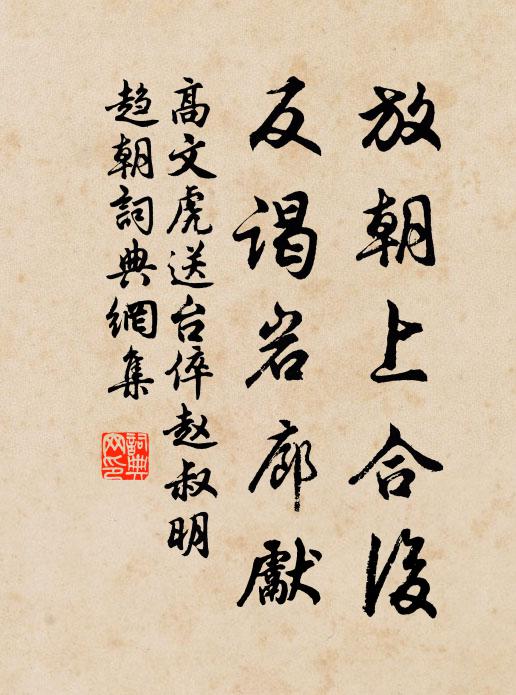 放朝上合後
反謁岩廊獻
高文虎送台倅赵叔明
趋朝詞典網集
詞典网印